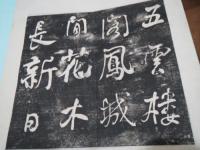 五雲樓
閣鳳城
間花木
長新日